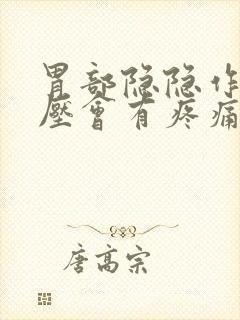 胃部隐隐作
壓會有疼痛
唐高宗